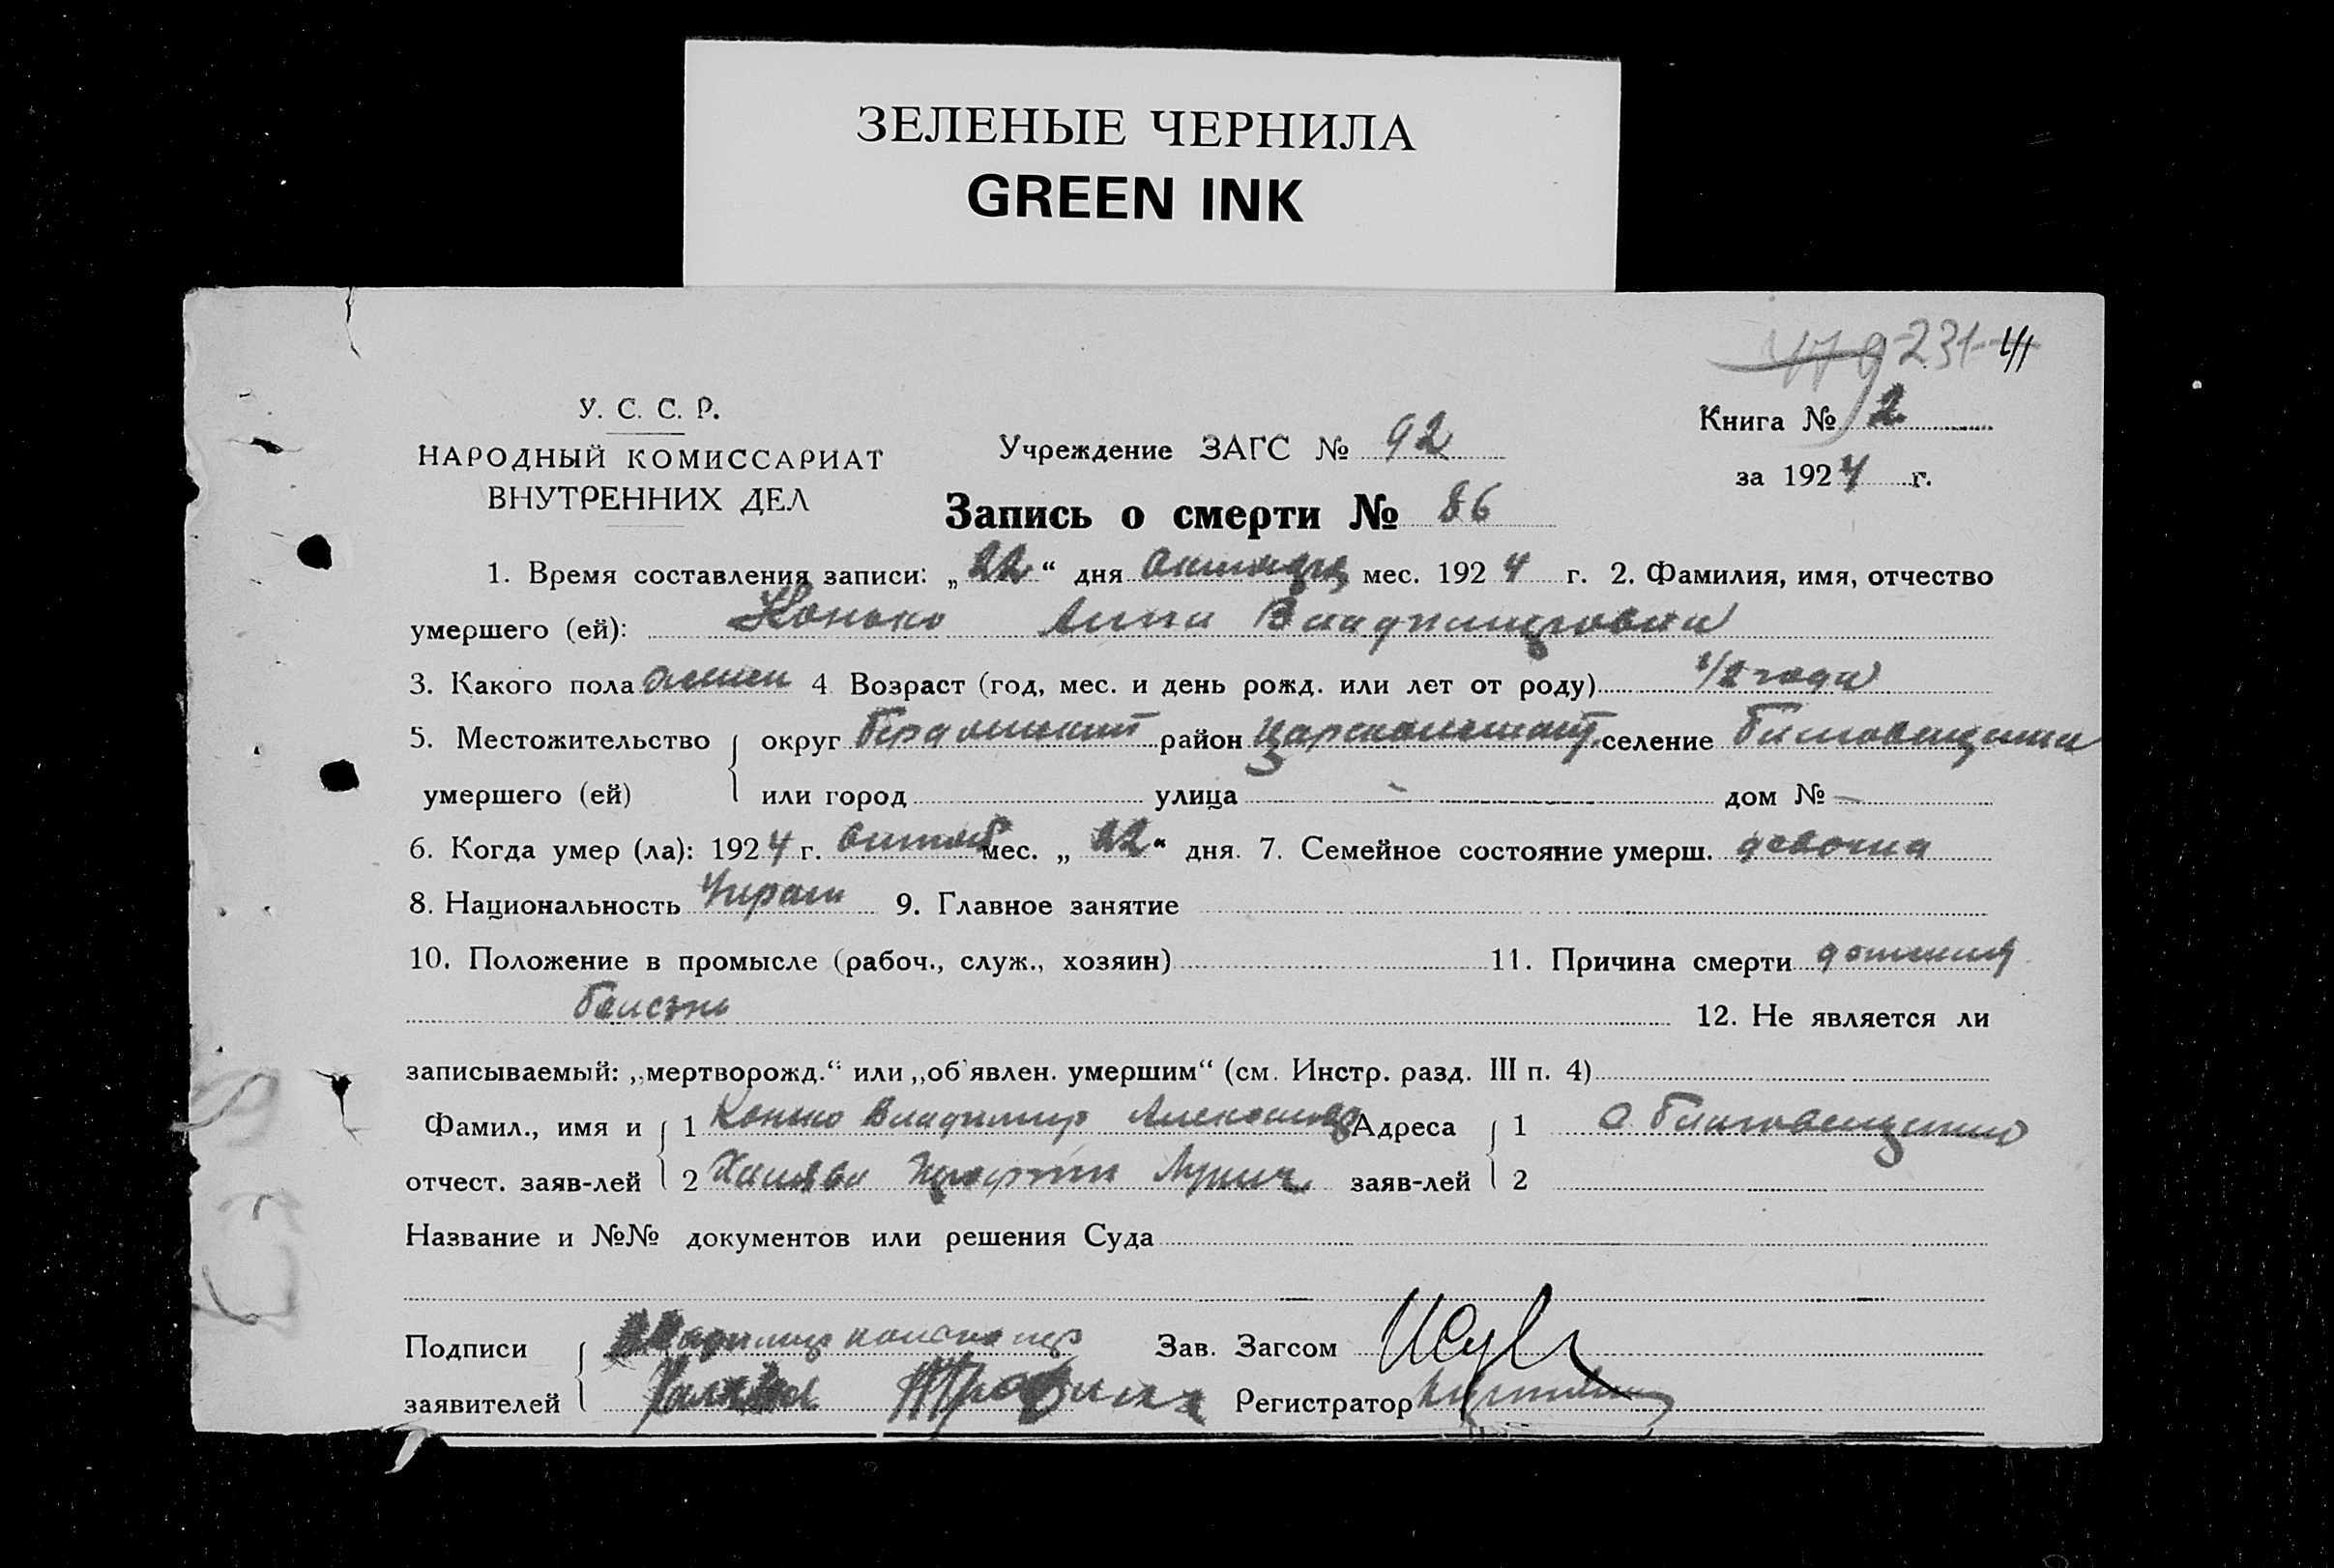 ЗЕЛЕНЫЕ ЧЕРНИЛА
GREEN INK
231
У. С. С. Р.
НАРОДНЫЙ КОМИССАРИАТ
ВНУТРЕННИХ ДЕЛ
Учреждение ЗАГС № 92
Книга № 2
за 1924 г.
Запись о смерти № 86
1. Время составления записи: „22“ дня октября мес. 1924 г. 2. Фамилия, имя, отчество
умершего (ей): Конько Анна Владимировна
3. Какого пола женск 4 Возраст (год, мес. и день рожд. или лет от роду) 1/2 года
5. Местожительство округ район селение
умершего (ей) или город улица - дом № —
6. Когда умер (ла): 1924 г. октяб мес. „22“ дня. 7. Семейное состояние умерш. девочка
8. Национальность Украин 9. Главное занятие
10. Положение в промысле (рабоч., служ., хозяин) 11. Причина смерти детская
болезнь
12. Не является ли
записываемый: „мертворожд.“ или „об'явлен. умершим“ (см. Инстр. разд. III п. 4)
Фамил., имя и 1 Конько Владимир Адреса 1
отчест. заяв-лей 2 заяв-лей 2
Название и №№ документов или решения Суда
Подписи Зав. Загсом
заявителей Регистратор